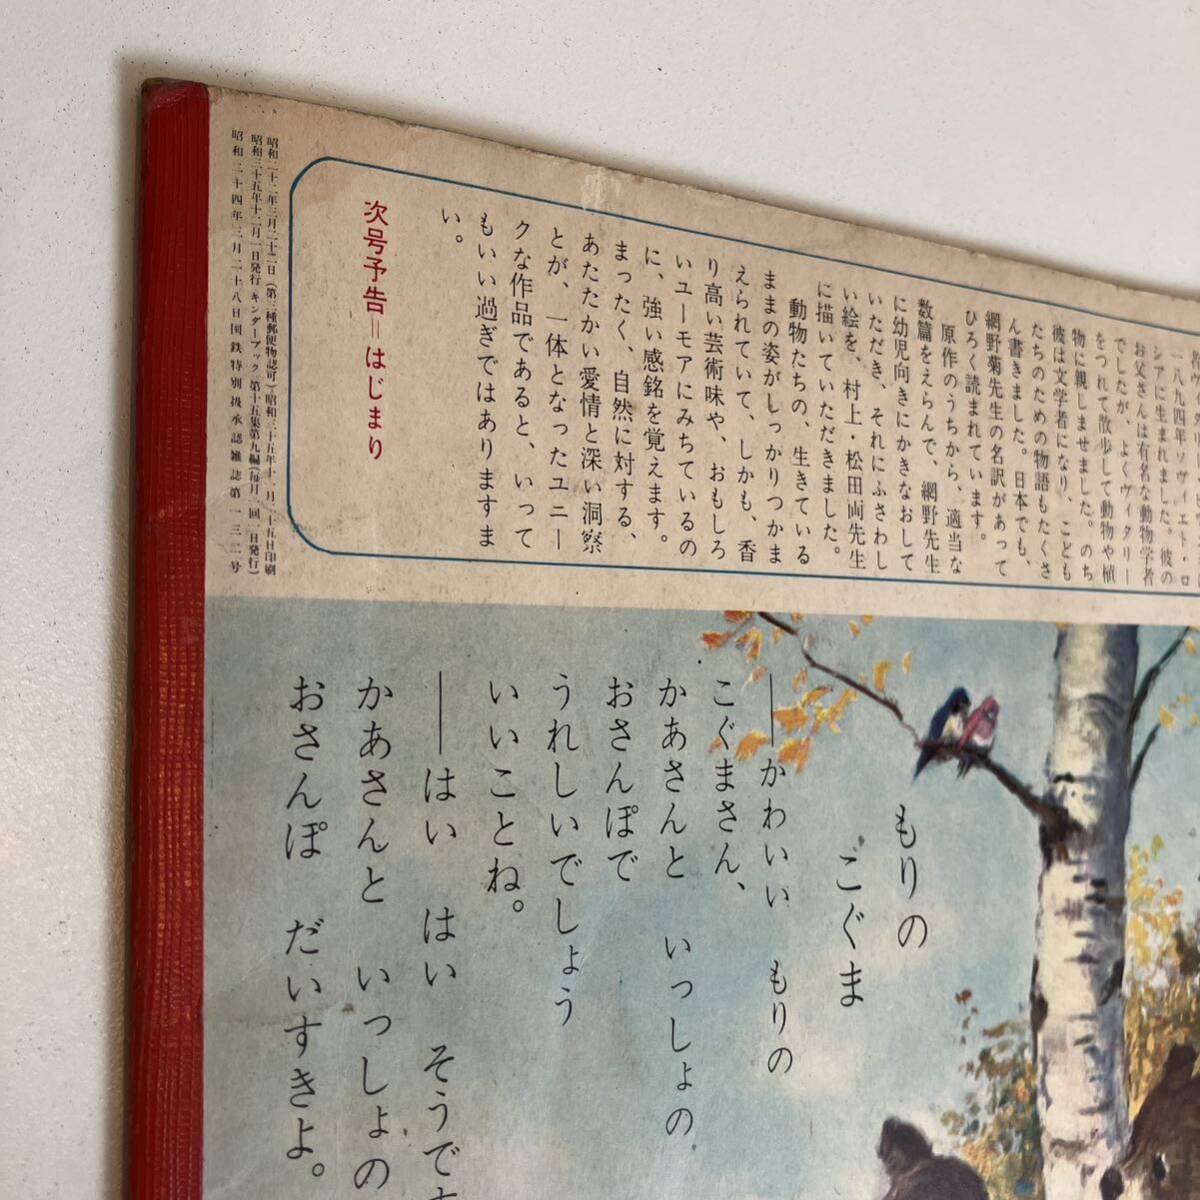 一八九四年ソヴィエト・ロ
シアに生まれました。彼の
お父さんは有名な動物学者
でしたが、よくヴィタリー
をつれて散歩して動物や植
物に親しませました。のち
彼は文学者になり、こども
たちのための物語もたくさ
ん書きました。日本でも、
網野菊先生の名訳があって
ひろく読まれています。
原作のうちから、適当な
数篇をえらんで、網野先生
に幼児向きにかきなおして
いただき、それにふさわし
い絵を、村上・松田両先生
に描いていただきました。
動物たちの、生きている
ままの姿がしっかりつかま
えられていて、しかも、香
り高い芸術味や、おもしろ
いユーモアにみちているの
に、強い感銘を覚えます。
まったく、自然に対する、
あたたかい愛情と深い洞察
とが、一体となったユニー
クな作品であると、いって
もいい過ぎではありますま
い。
次号予告＝はじまり
昭和二十二年三月二十二日（第三種郵便物認可）昭和三十五年十一月二十五日印刷
昭和三十五年十二月一日発行 キンダーブック 第十五集第九編（毎月一回一日発行）
昭和二十四年三月二十八日国鉄特別扱承認雑誌第一三二号
もりの
こぐま
──かわいい もりの
こぐまさん、
かあさんと いっしょの
おさんぽで
うれしいでしょう
いいことね。
──はい はい そうです
かあさんと いっしょの
おさんぽ だいすきよ。